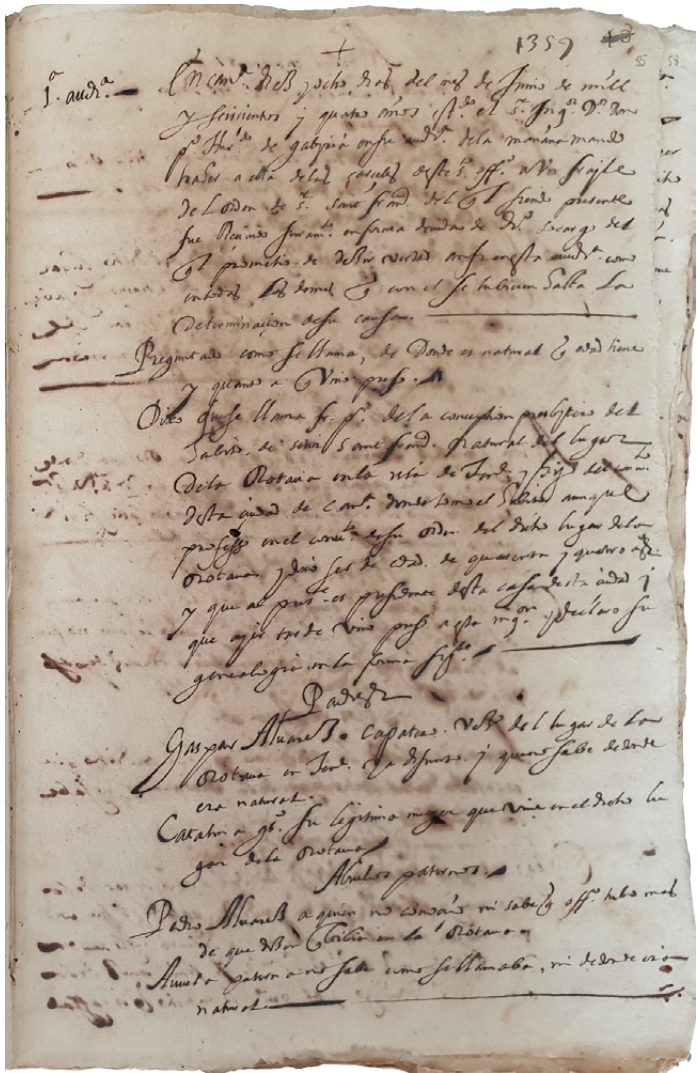 +
1359
55
58
1ª. audª.
En Canª. diez y ocho dias del mes de Junio de mill
y seiscientos y quatro años estdo. el Sr. Inqor. Dr. Don
po. Hurdo. de gabiria en su audª. dela mañana mando
traher a ella delas carceles deste sto. offo. a Un fraile
del orden de Sr. Sant franco. del ql siendo presente
fue Recivido Juramto. en forma devida de dro. so cargo del
ql prometio de dezir verdad ansi en esta audª. como
en todas las demas q con el se tubieren hasta la
Determinaçion desu causa.
Preguntado como se llama, de Donde es natural q edad tiene
y quanto a q Vino preso.
Dixo que se llama fr. po. dela conception presbytero del
habito de señor Sant franco. Natural del lugar
dela Orotava en la isla de Tenfe. y hijo del convto.
desta ciudad de Canª. donde tomo el habito aunque
professo en el convto. desu orden del dicho lugar dela
Orotava y dixo ser de edad de quarenta y quatro as.
y que al press.te es presidente desta casa desta ciudad y
que ayer tarde vino preso a esta Inqon. y declaro su
genealogia en la forma sigte.
Padres
Gaspar Alvarez. Capatero. Vezo. del lugar dela
Orotava en Tenfe. ya difunto y que no sabe de donde
era natural.
Catalina gs. Su legitima muger que vive en el dicho lu
gar dela Orotava
Abuelos paternos.
Pedro Alvarez a quien no conocio ni sabe q offo. tubo mas
de que en la Orotava
Aguela paterna no sabe como se llamaba, ni de donde era
natural.